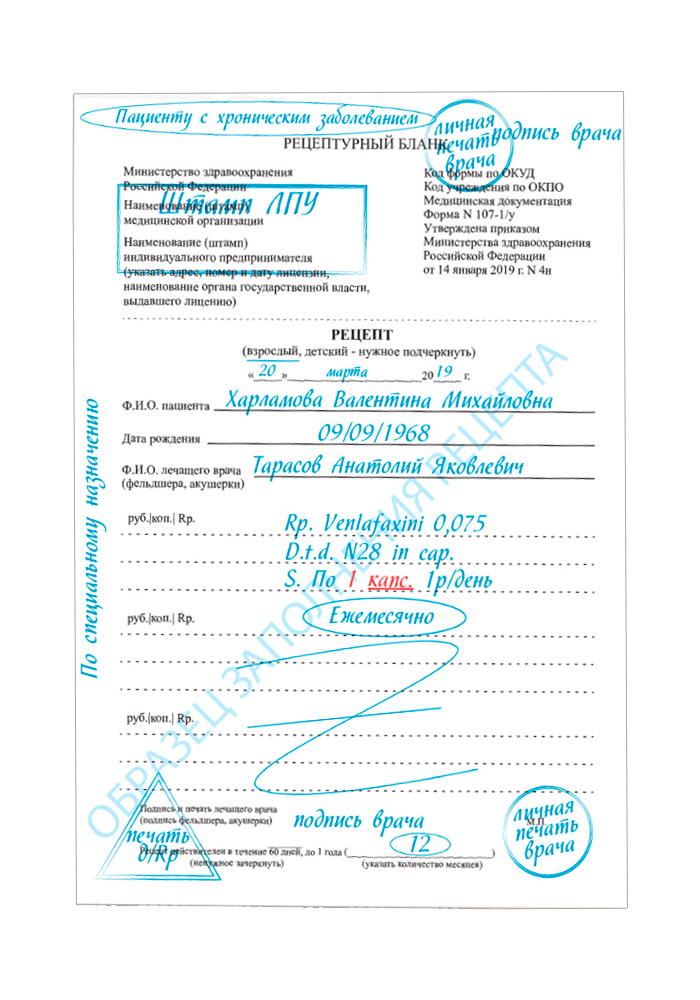 Пациенту с хроническим заболеванием
личная печать врача
подпись врача
РЕЦЕПТУРНЫЙ БЛАНК
Министерство здравоохранения
Российской Федерации
Штамп ЛПУ
Наименование (штамп)
медицинской организации
Наименование (штамп)
индивидуального предпринимателя
(указать адрес, номер и дату лицензии,
наименование органа государственной власти,
выдавшего лицению)
Код формы по ОКУД
Код учреждения по ОКПО
Медицинская документация
Форма N 107-1/у
Утверждена приказом
Министерства здравоохранения
Российской Федерации
от 14 января 2019 г. N 4н
РЕЦЕПТ
(взрослый, детский - нужное подчеркнуть)
«20» марта 2019 г.
Ф.И.О. пациента Харламова Валентина Михайловна
Дата рождения 09/09/1968
Ф.И.О. лечащего врача Тарасов Анатолий Яковлевич
(фельдшера, акушерки)
По специальному назначению
руб.|коп.| Rp.
Rp. Venlafaxini 0,075
D.t.d. N28 in cap.
S. По 1 капс. 1р/день
руб.|коп.| Rp.
Ежемесячно
руб.|коп.| Rp.
ОБРАЗЕЦ ЗАПОЛНЕНИЯ РЕЦЕПТА
Подпись и печать лечащего врача
(подпись фельдшера, акушерки)
подпись врача
М.П.
личная печать врача
печать д/Rp
Рецепт действителен в течение 60 дней, до 1 года (12)
(ненужное зачеркнуть)
(указать количество месяцев)